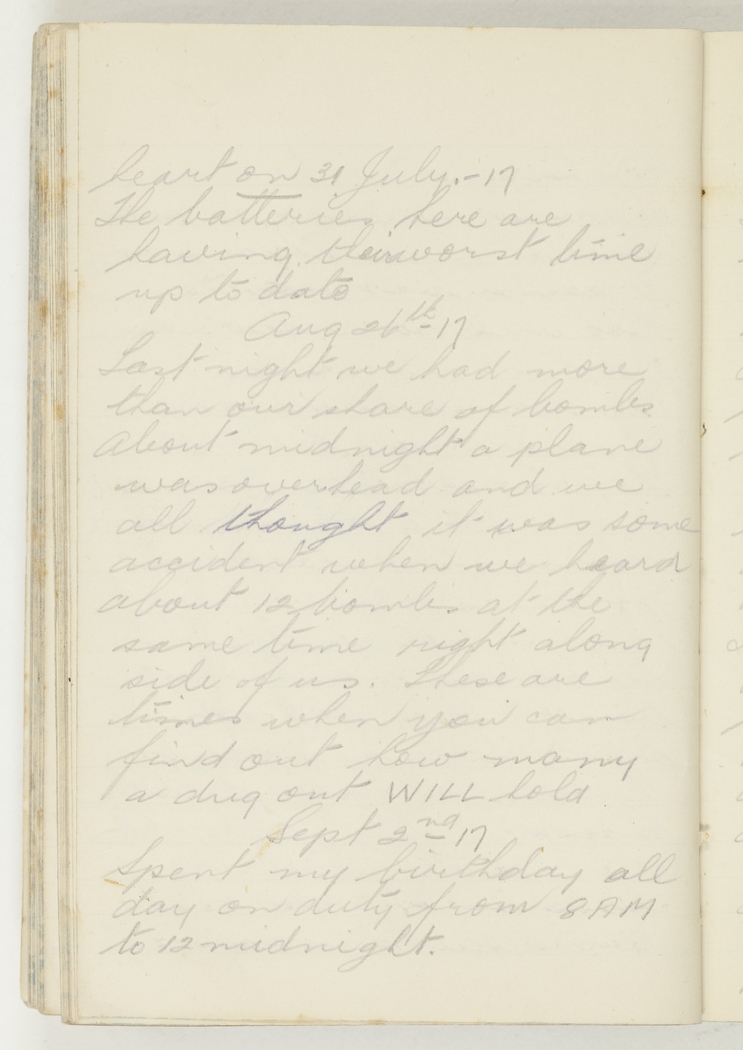 heart on 31 July.-17
The batteries here are
having their worst time
up to date
Aug 26th-17
Last night we had more
than our share of bombs
About midnight a plane
was overhead and we
all thought it was some
accident when we heard
about 12 bombs at the
same time right along
side of us. These are
times when you can
find out how many
a dug out WILL hold
Sept 2nd 17
Spent my birthday all
day on duty from 8AM
to 12 midnight.